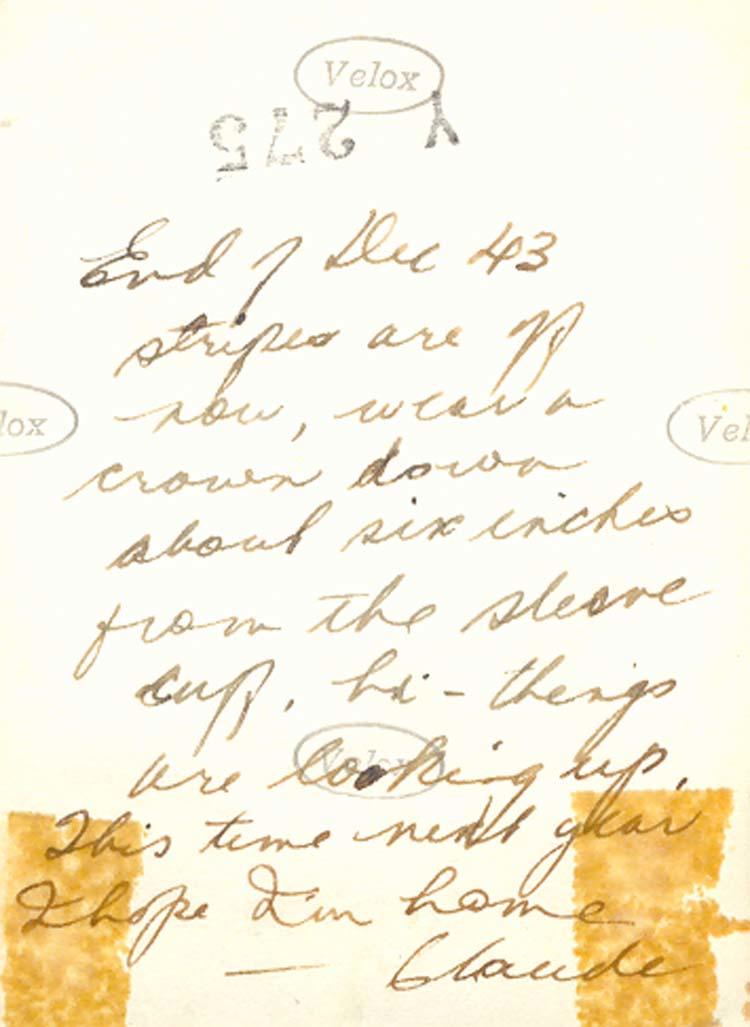 Velox
Y 275
End of Dec 43
stripes are off
now, wear a
lox
Vel
crown down
about six inches
from the sleeve
cuff, hi - things
Velox
are looking up,
This time next year
I hope I'm home
— Claude